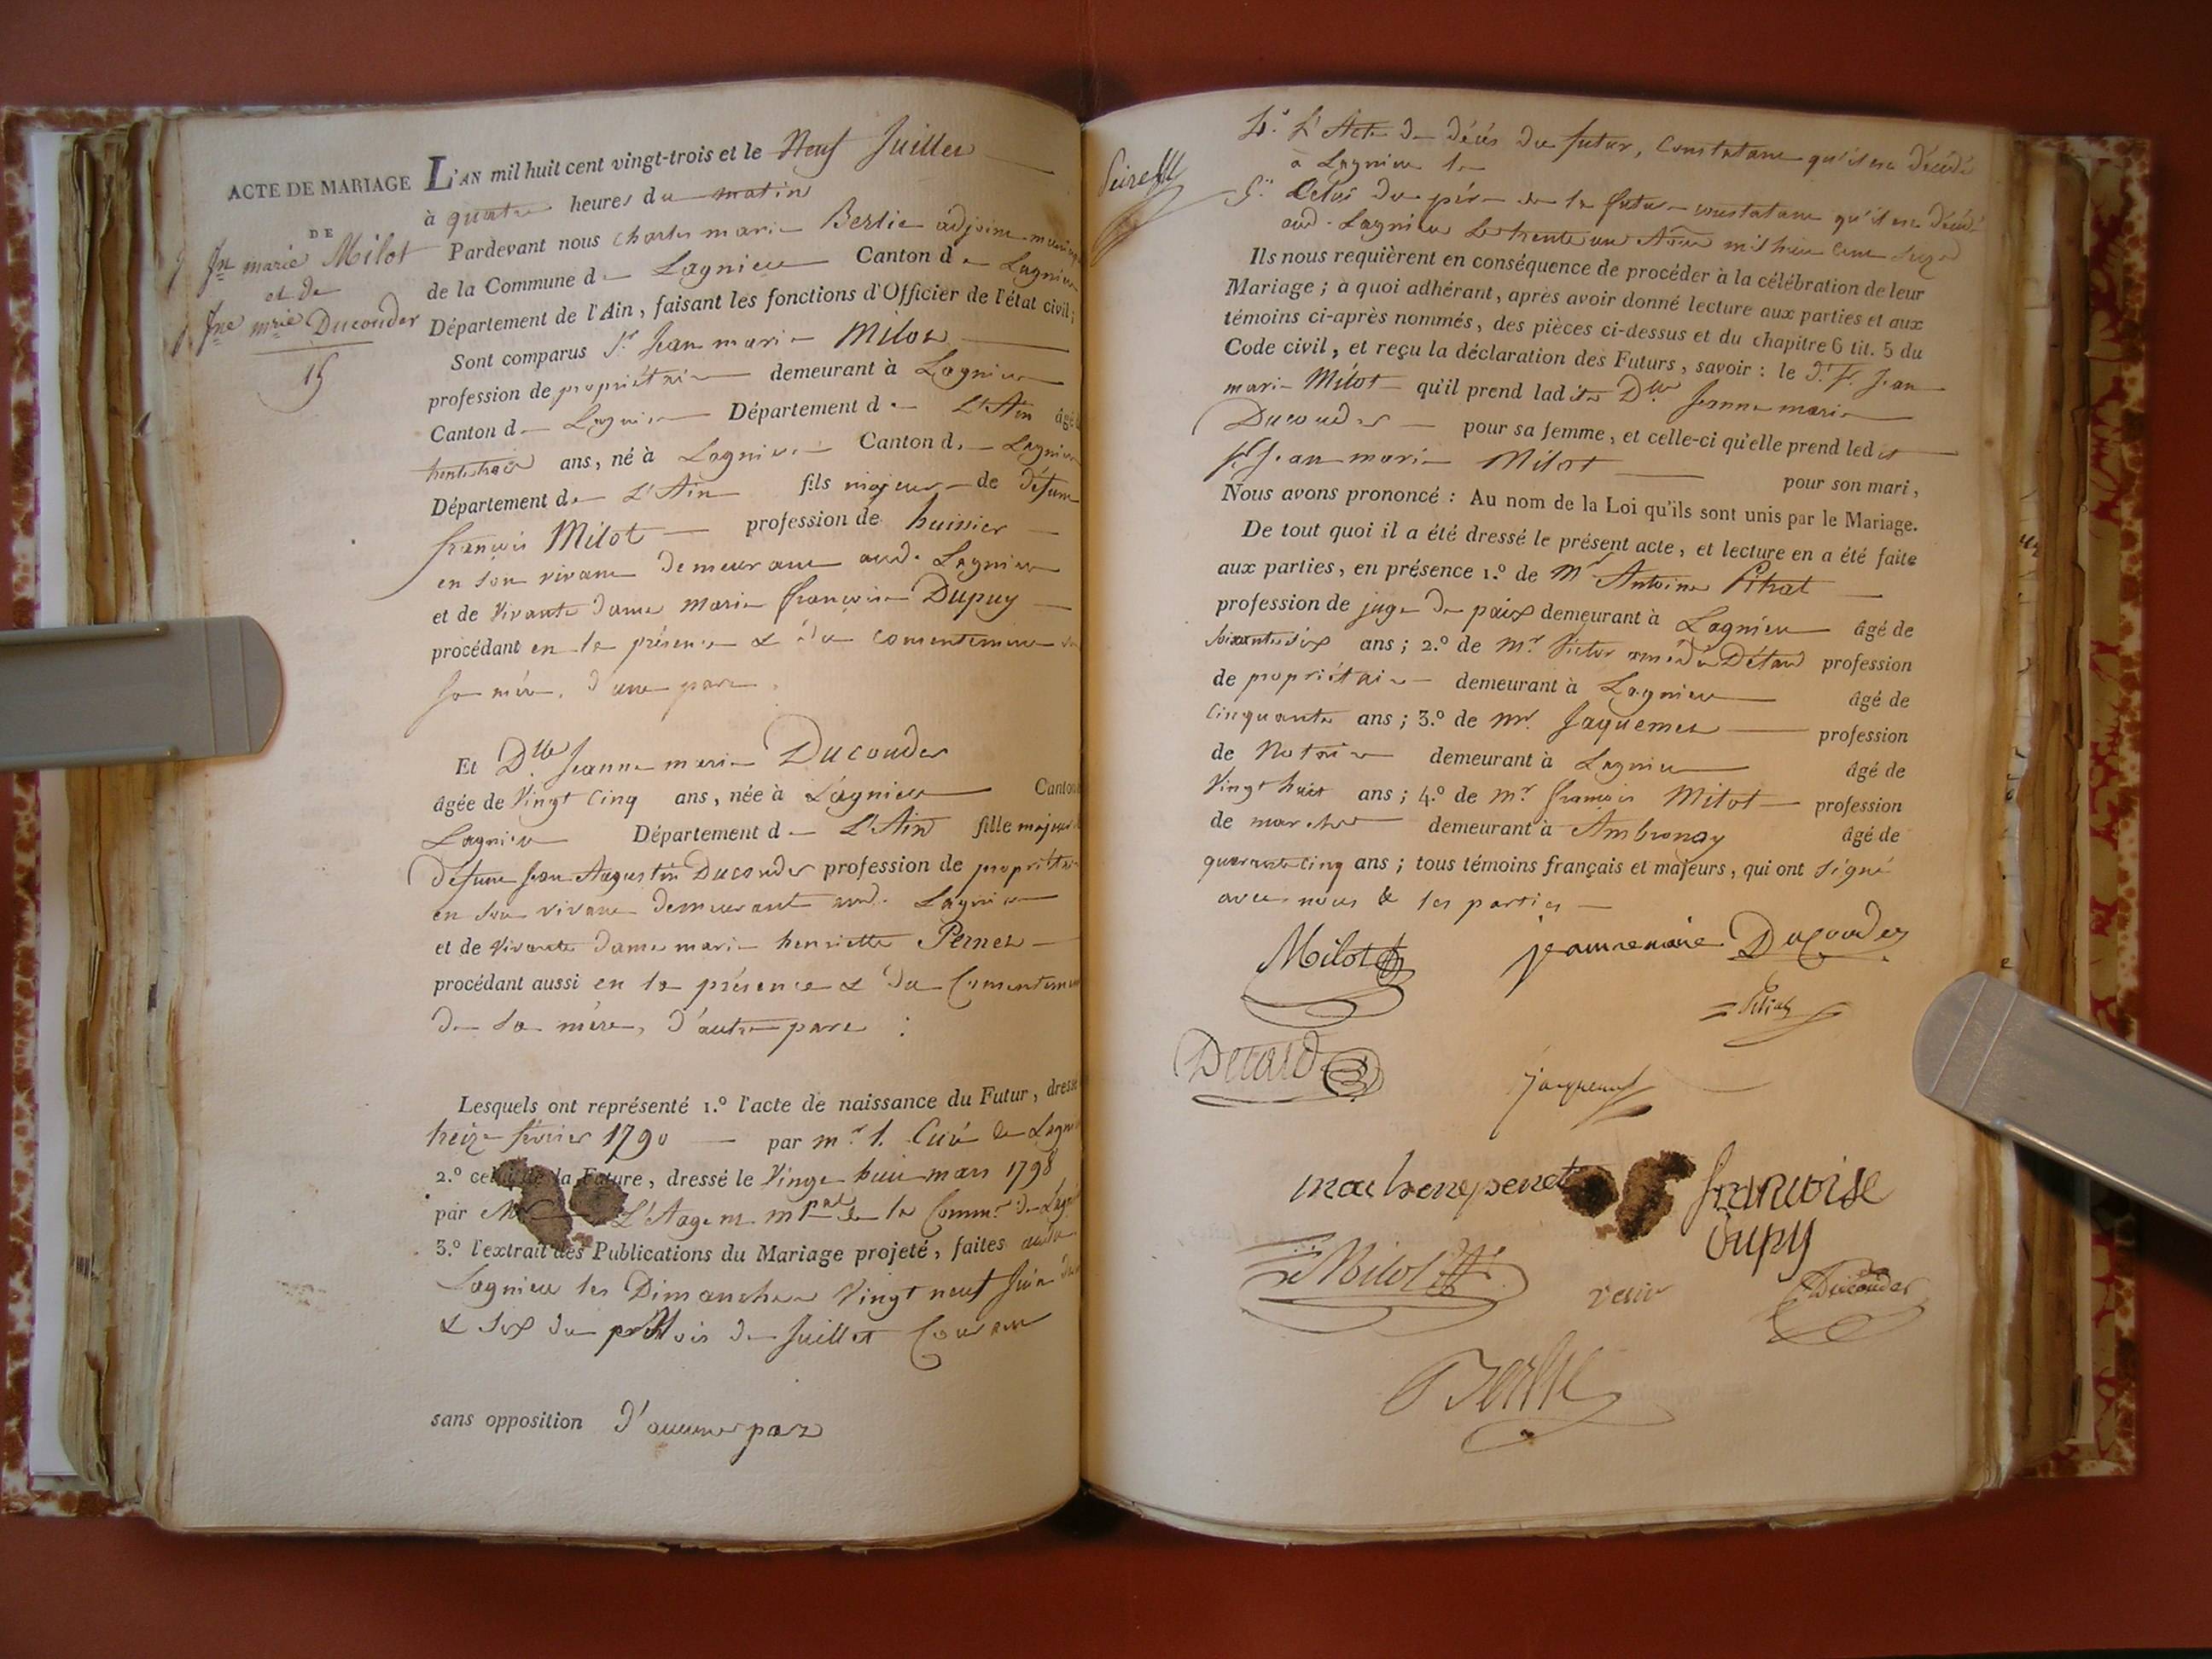 ACTE DE MARIAGE
DE
Jn marie Milot
et de
Jne mrie Ducouder
15
L'AN mil huit cent vingt-trois et le Neuf Juillet
à quatre heures du matin
Pardevant nous charles marie Berlie adjoint
de la Commune de Lagnieu Canton de Lagnieu
Département de l'Ain, faisant les fonctions d'Officier de l'état civil;
Sont comparus Sr Jean marie Milot
profession de propriétaire demeurant à Lagnieu
Canton de Lagnieu Département de L'Ain âgé d
trente trois ans, né à Lagnieu Canton de Lagnieu
Département de L'Ain fils majeur de défunt
françois Milot profession de huissier
en son vivant demeurant aud. Lagnieu
et de Vivante dame marie françoise Dupuy
procédant en la présence & du consentement de
sa mère, d'une part.
Et Dlle Jeanne marie Ducouder
âgée de Vingt Cinq ans, née à Lagnieu Canton
Lagnieu Département de L'Ain fille majeure
défunt Jean Augustin Ducouder profession de propriétaire
en son vivant demeurant aud. Lagnieu
et de Vivante dame marie henriette Pernet
procédant aussi en la présence & du Consentement
de sa mère, d'autre part :
Lesquels ont représenté 1.º l'acte de naissance du Futur, dressé
treize février 1790 par mr. Curé de Lagnieu
2.º celui de la Future, dressé le Vingt huit mars 1798
par L'Agent mpal de la Comme de Lagnieu
3.º l'extrait des Publications du Mariage projeté, faites
Lagnieu les Dimanches Vingt neuf Juin
& six du Mois de Juillet Courant
sans opposition d'aucune part
4.º L'Acte de décès du futur, Constatant qu'il est décédé
à Lagnieu le
5.º Celui du père de la future constatant qu'il est décédé
aud. Lagnieu Le trente un mil huit cent
Ils nous requièrent en conséquence de procéder à la célébration de leur
Mariage ; à quoi adhérant, après avoir donné lecture aux parties et aux
témoins ci-après nommés, des pièces ci-dessus et du chapitre 6 tit. 5 du
Code civil, et reçu la déclaration des Futurs, savoir : le d. Sr. Jean
marie Milot qu'il prend ladite Dlle Jeanne marie
Ducouder pour sa femme, et celle-ci qu'elle prend ledit
Sr Jean marie Milot pour son mari,
Nous avons prononcé : Au nom de la Loi qu'ils sont unis par le Mariage.
De tout quoi il a été dressé le présent acte, et lecture en a été faite
aux parties, en présence 1.º de Mr Antoine Pitrat
profession de juge de paix demeurant à Lagnieu âgé de
soixante six ans ; 2.º de Mr. Victor amédée Détard profession
de propriétaire demeurant à Lagnieu âgé de
Cinquante ans ; 3.º de Mr. Jaquemet profession
de Notaire demeurant à Lagnieu âgé de
Vingt huit ans ; 4.º de Mr. françois Milot profession
de demeurant à Ambronay âgé de
quarante cinq ans ; tous témoins français et majeurs, qui ont signé
avec nous & les parties
Milot jeanne marie Ducouder
Pitrat
Detard
jaquemet
françoise
Dupuy
Milot Ducouder
Berlie